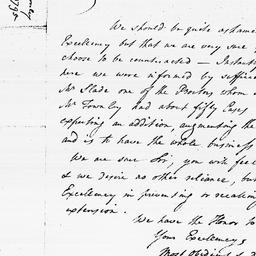 We should be quite ashamed
Excellency but that we are very sure
choose to be counteracted — Instant
here we were informed by suffici
Mr Slade one of the Proctors whom
Mr Townley had about fifty Cases
expecting an addition, augmenting the
and is to have the whole business
We are sure Sir, you will feel
& we desire no other reliance, but
Excellency in preventing or recalling
extension.
We have the Honor to
Your Excellency's
Most Obedient &
1795